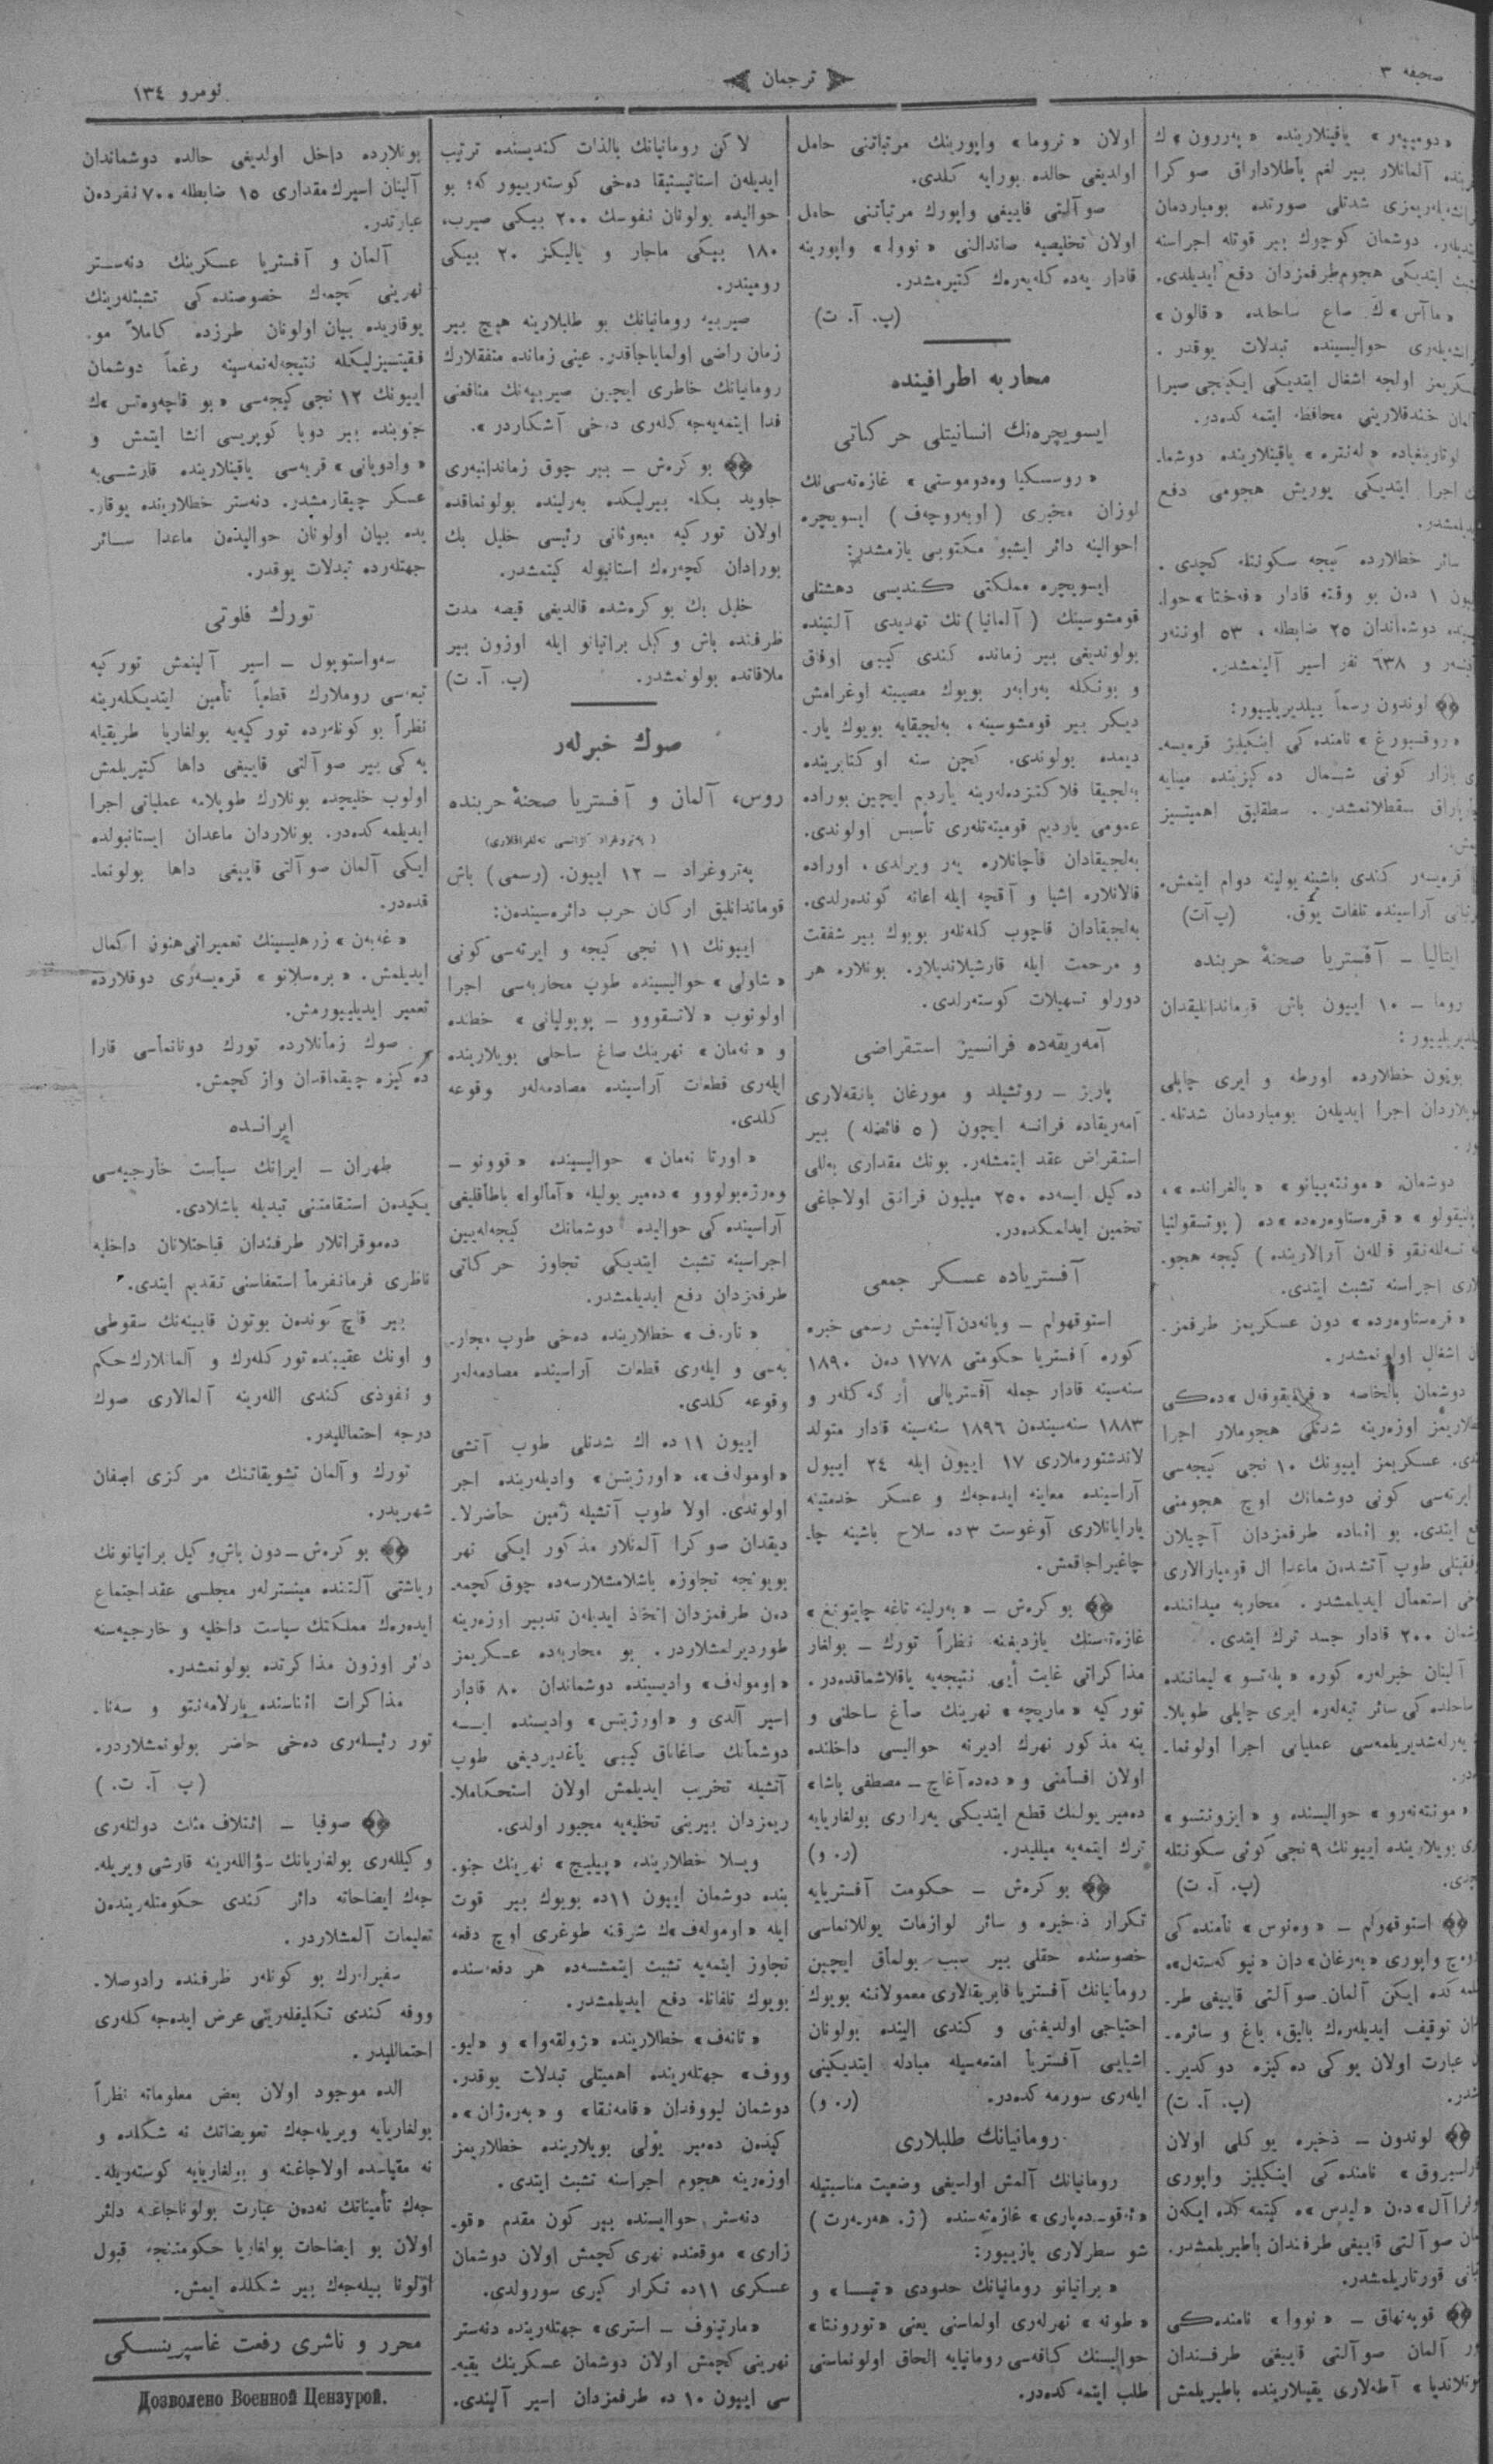 صحیفه ۳
ترجمان
نومرو ۱۳٤
« دومبپەر » یاقینلارینده « پەررون » ك
آلمانلار بیر لغم پاطلاداراق صوكرا
شدتلی صورتده بومباردمان
دوشمان كوچوك بیر قوتله اجراسنه
ایتدیكی هجوم طرفمزدان دفع ایدیلدی.
« ماآس » ك صاغ ساحلده « قالون »
حوالیسینده تبدلات یوقدر.
اولجه اشغال ایتدیكی ایكینجی صیرا
خندقلارینی محافظه ایتمه كده‌در.
لوتارینغیاده « لەنتره » یاقینلارینده دوشما-
اجرا ایتدیكی یوریش هجومی دفع
سائر خطلارده كیجه سكونتله كچدی.
۱ دەن بو وقته قادار « فەختا » حوا-
دوشماندان ۲۵ ضابطله، ۵۳ اونتەر
و ٦۳۸ نفر اسیر آلینمشدر.
لوندون رسماً بیلدیریلییور:
« روقسبورغ » نامنده كی اینكیلیز قره‌یسه-
بازار كونی شمال ده كیزینده مینایه
سقطلانمشدر. سقطلق اهمیتسیز
قره‌یسەر كندی باشینه یولینه دوام ایتمش،
آراسینده تلفات یوق. (پ آ ت)
ایتالیا – آفستریا صحنهٔ حربنده
روما – ۱۰ ایییون باش قوماندانلیقدان
بوتون خطلارده اورطه و ایری چاپلی
اجرا ایدیلەن بومباردمان شدتله-
دوشمان، « مونتەپیانو » « بالغرانده »،
« قره‌ستاوه‌رده » ده ( پوتسقولنیا
آرالارینده ) كیجه هجو-
اجراسنه تشبث ایتدی.
« قره‌ستاوه‌رده » دون عسكریمز طرفمز-
اشغال اولونمشدر.
دوشمان بالخاصه « فره‌یقوفەل » ده‌كی
اوزه‌رینه شدتلی هجوملار اجرا
عسكریمز ایییونك ۱۰ نجی كیجه‌سی
ایرته‌سی كونی دوشمانك اوچ هجومنی
ایتدی. بو اثناده طرفمزدان آچیلان
طوپ آتشدن ماعدا ال قومبارالاری
استعمال ایدیلمشدر. محاربه میداننده
۲۰۰ قادار جسد ترك ایتدی.
آلینان خبرلەره كوره « پلەتسو » لیماننده
ساحلده كی سائر تپەلەره ایری چاپلی طوپلا-
یەرلەشدیریلمه‌سی عملیاتی اجرا اولونما-
« مونتەنەرو » حوالیسنده و « ایزونتسو »
بویلارینده ایییونك ۹ نجی كونی سكونتله
(پ. آ. ت)
استوقهولم – « وەنوس » نامنده كی
واپوری « بەرغان » دان « نیو كەستەل » ە
ایكن آلمان صوآلتی قاییغی طر-
توقیف ایدیلەرەك بالیق، یاغ و سائره-
عبارت اولان یوكی ده كیزه دوكدیر-
(پ. آ. ت)
لوندون – ذخیره یوكلی اولان
نامنده كی اینكیلیز واپوری
دەن « لیدس » ە كیتمه كده ایكەن
صوآلتی قاییغی طرفندان باطیریلمشدر.
قورتاریلمشدر.
قوپەنهاق – « نووا » نامنده‌كی
آلمان صوآلتی قاییغی طرفندان
آطه‌لاری یقینلارینده باطیریلمش
اولان « تروما » واپورینك مرتباتنی حامل
اولدیغی حالده بورایه كلدی.
صوآلتی قاییغی واپورك مرتباتنی حامل
اولان تخلیصیه صاندالنی « نووا » واپورینه
قادار یەدە كلەیەرەك كتیرمشدر.
(پ. آ. ت)
محاربه اطرافینده
ایسویچره‌نك انسانیتلی حركاتی
« روسسكیا وەدوموستی » غازەتەسی‌نك
لوزان مخبری ( اوبەروچەف ) ایسویچره
احوالینه دائر ایشبو مكتوبی یازمشدر:
ایسویچره مملكتی كندیسی دهشتلی
قومشوسینك ( آلمانیا ) نك تهدیدی آلتینده
بولوندیغی بیر زمانده كندی كیبی اوفاق
و بونكله بەرابەر بویوك مصیبته اوغرامش
دیكر بیر قومشوسینه، بەلچیقایه بویوك یار-
دیمده بولوندی. كچن سنه اوكتابرینده
بەلچیقا فلاكتزدەلەرینه یاردیم ایچین بوراده
عمومی یاردیم قومیتەتلەری تأسیس اولوندی.
بەلچیقادان قاچانلاره یەر ویرلدی، اوراده
قالانلاره اشیا و آقچه ایله اعانه كوندەرلدی.
بەلچیقادان قاچوب كلەنلەر بویوك بیر شفقت
و مرحمت ایله قارشیلاندیلار. بونلاره هر
دورلو تسهیلات كوستەرلدی.
آمەریقەده فرانسیز استقراضی
پاریز – روتشیلد و مورغان بانقەلاری
آمەریقاده فرانسه ایچون ( ۵ فائضله ) بیر
استقراض عقد ایتمشلەر. بونك مقداری بەللی
ده كیل ایسەده ۲۵۰ میلیون فرانق اولاجاغی
تخمین ایدلمكده‌در.
آفستریاده عسكر جمعی
استوقهولم – ویانەدن آلینمش رسمی خبره
كوره آفستریا حكومتی ۱۷۷۸ دەن ۱۸۹۰
سنەسینه قادار جمله آفستریالی اركەكلەر و
۱۸۸۳ سنەسیندەن ۱۸۹٦ سنەسینه قادار متولد
لاندشتورملاری ۱۷ ایییون ایله ۲٤ ایییول
آراسینده معاینه ایدەجەك و عسكر خدمتینه
یارایانلاری آوغوست ۳ ده سلاح باشینه چا-
چاغیراجاقمش.
بوكرەش – « بەرلینه تاغه چایتونغ »
غازەتەسنك یازدیغنه نظراً تورك – بولغار
مذاكراتی غایت أیی نتیجه‌یه یاقلاشماقده‌در.
توركیه « ماریچه » نهرینك صاغ ساحلنی و
ینه مذكور نهرك ادیرنه حوالیسی داخلنده
اولان اقسامنی و « دەدەآغاچ – مصطفی پاشا »
دەمیر یولنك قطع ایتدیكی یەرلری بولغاریایه
ترك ایتمه‌یه میللیدر. (ر. و)
بوكرەش – حكومت آفستریایه
تكرار ذخیره و سائر لوازمات یوللانماسی
خصوسنده حقلی بیر سبب بولمأق ایچین
رومأنیانك آفستریا فابریقالاری معمولاتنه بویوك
احتیاجی اولدیغنی و كندی الینده بولونان
اشیایی آفستریا امتعەسیله مبادله ایتدیكینی
ایلەری سورمه كده‌در. (ر. و)
رومانیانك طلبلاری
رومانیانك آلمش اولدیغی وضعیت مناسبتیله
غازەتەسنده ( ژ. هەربەرت )
شو سطرلاری یازییور:
« براتیانو رومانیانك حدودی « تیسا » و
« طونه » نهرلەری اولماسنی یعنی « تورونتا »
حوالیسنك كافه‌سی رومانیایه الحاق اولونماسنی
طلب ایتمه كده‌در.
لاكن رومانیانك بالذات كندیسنده ترتیب
ایدیلەن استاتیستیقا دەخی كوستەرییور كه؛ بو
حوالیده بولونان نفوسك ۲۰۰ بیكی صیرب،
۱۸۰ بیكی ماجار و یالیكز ۲۰ بیكی
رومیندر.
صیربیه رومانیانك بو طلبلارینه هیچ بیر
زمان راضی اولمایاجاقدر. عینی زمانده متفقلارك
رومانیانك خاطری ایچین صیربیه‌نك منافعنی
فدا ایتمەیەجه كلەری دخی آشكاردر ».
بوكرەش – بیر چوق زماندانبەری
جاوید بكله بیرلیكده بەرلینده بولونماقده
اولان توركیه مبعوثانی رئیسی خلیل بك
بورادان كچەرەك استانبوله كیتمشدر.
خلیل بك بوكرەشده قالدیغی قیصه مدت
ظرفنده باش وكیل براتیانو ایله اوزون بیر
ملاقاتده بولونمشدر. (پ. آ. ت)
صوك خبرلەر
روس، آلمان و آفستریا صحنهٔ حربنده
( پەتروغراد آژانسی تەلغرافلاری )
پەتروغراد – ۱۲ ایییون. (رسمی) باش
قوماندانلیق اركان حرب دائرەسیندەن:
ایییونك ۱۱ نجی كیجه و ایرته‌سی كونی
« شاولی » حوالیسینده طوپ محاربه‌سی اجرا
اولونوب « لانسقووو – پوپولیانی » خطنده
و « نەمان » نهرینك صاغ ساحلی بویلارینده
ایلەری قطعات آراسینده مصادمەلەر وقوعه
كلدی.
« اورتا نەمان » حوالیسینده « قوونو –
وەرژەبولووو » دەمیر یولیله « آمالوا » باطاقلیغی
آراسینده كی حوالیده دوشمانك كیجەلەیین
اجراسینه تشبث ایتدیكی تجاوز حركاتی
طرفمزدان دفع ایدیلمشدر.
« نارەف » خطلارینده دەخی طوپ محار-
بەسی و ایلەری قطعات آراسینده مصادمەلەر
وقوعه كلدی.
ایییون ۱۱ ده اك شدتلی طوپ آتشی
« اومولەف »، « اورژیتس » وادیلەرینده اجر
اولوندی. اولا طوپ آتشیله زمین حاضرلا-
دیقدان صوكرا آلمانلار مذكور ایكی نهر
بویونجه تجاوزه باشلامشلارسه‌ده چوق كچمه-
دەن طرفمزدان اتخاذ ایدیلەن تدبیر اوزەرینه
طوردیرلمشلاردر. بو محاربه‌ده عسكریمز
« اومولەف » وادیسینده دوشماندان ۸۰ قادار
اسیر آلدی و « اورژیتس » وادیسنده ایسه
دوشمانك صاغاناق كیبی یاغدیردیغی طوپ
آتشیله تخریب ایدیلمش اولان استحكاملا-
ریمزدان بیرینی تخلیه‌یه مجبور اولدی.
ویسلا خطلارینده، « پیلیچ » نهرینك جنو-
بنده دوشمان ایییون ۱۱ده بویوك بیر قوت
ایله « اومولەف »ك شرقنه طوغری اوچ دفعه
تجاوز ایتمەیه تشبث ایتمشسه‌ده هر دفعه‌سنده
بویوك تلفاتله دفع ایدیلمشدر.
« تانەف » خطلارینده « ژولقەوا » و « لیو-
ووف » جهتلەرینده اهمیتلی تبدلات یوقدر.
دوشمان لیووفدان « قامەنقا » و « بەرەژان » ه
كیدەن دەمیر یولی بویلارینده خطلاریمز
اوزەرینه هجوم اجراسنه تشبث ایتدی.
دنەستر حوالیسنده بیر كون مقدم « قو-
زاری » موقعنده نهری كچمش اولان دوشمان
عسكری ۱۱ده تكرار كیری سورولدی.
« مارتینوف – استری » جهتلەرینده دنەستر
نهرینی كچمش اولان دوشمان عسكرینك بقیه-
سی ایییون ۱۰ ده طرفمزدان اسیر آلیندی.
بونلارده داخل اولدیغی حالده دوشماندان
آلینان اسیرك مقداری ۱۵ ضابطله ۷۰۰ نفردەن
عبارتدر.
آلمان و آفستریا عسكرینك دنەستر
نهرینی كچمەك خصوصنده كی تشبثلەرینك
یوقاریده بیان اولونان طرزده كاملاً مو-
فقیتسیزلیكله نتیجه‌لەنمەسینه رغماً دوشمان
ایییونك ۱۲ نجی كیجه‌سی « بوقاچەوەتس »ك
جنوبنده بیر دوبا كوپریسی انشا ایتمش و
قریه‌سی یاقینلارینده قارشی‌یه
عسكر چیقارمشدر. دنەستر خطلارینده یوقار-
یده بیان اولونان حوالیدەن ماعدا سائر
جهتلەرده تبدلات یوقدر.
تورك فلوتی
سەواستوپول – اسیر آلینمش توركیه
تبعه‌سی روملارك قطعیاً تأمین ایتدیكلەرینه
نظراً بو كونلەرده توركیەیه بولغاریا طریقیله
یەكی بیر صوآلتی قاییغی داها كتیریلمش
اولوب خلیجده بونلارك طوپلامه عملیاتی اجرا
ایدیلمه كده‌در. بونلاردان ماعدان ایستانبولده
ایكی آلمان صوآلتی قاییغی داها بولونما-
قده‌در.
« غەبەن » زرهلیسینك تعمیراتی هنوز اكمال
ایدیلمش. « برەسلاو » قرەیسەری دوقلارده
تعمیر ایدیلییورمش.
صوك زمانلارده تورك دونانماسی قارا
ده كیزه چیقماقدان واز كچمش.
ایرانده
طهران – ایرانك سیاست خارجیه‌سی
یكیدەن استقامتنی تبدیله باشلادی.
دەموقراتلار طرفندان قباحتلانان داخلیه
ناظری فرمانفرمأ استعفاسنی تقدیم ایتدی.
بیر قاچ كوندەن بوتون قابینه‌نك سقوطی
و اونك عقیبنده توركلەرك و آلمانلارك حكم
و نفوذی كندی اللەرینه آلمالاری صوك
درجه احتمالیدر.
تورك و آلمان تشویقاتنك مركزی اصفهان
شهریدر.
بوكرەش – دون باش وكیل براتیانونك
ریاستی آلتنده مینسترلەر مجلسی عقد اجتماع
ایدەرەك مملكتك سیاست داخلیه و خارجیه‌سنه
دائر اوزون مذاكرتده بولونمشدر.
مذاكرات اثناسنده پارلامەنتو و سەنا-
تور رئیسلەری دەخی حاضر بولونمشلاردر.
(پ. آ. ت.)
صوفیا – ائتلاف مثلث دولتلەری
وكیللەری بولغاریانك سؤاللەرینه قارشی ویریله-
جەك ایضاحاته دائر كندی حكومتلەریندەن
تعلیمات آلمشلاردر.
سفیرلرك بو كونلەر ظرفنده رادوسلا-
ووفه كندی تكلیفلەرینی عرض ایدەجه كلەری
احتمالیدر.
الده موجود اولان بعض معلوماته نظراً
بولغاریایه ویریلەجەك تعویضاتك نه شكلده و
نه مقیاسده اولاجاغنه و بولغاریایه كوستەریله-
جەك تأمیناتك نەدەن عبارت بولوناجاغنه دائر
اولان بو ایضاحات بولغاریا حكومتنجه قبول
اولونا بیلەجەك بیر شكلده ایمش.
محرر و ناشری رفعت غاسپرینسكی
Дозволено Военной Цензурой.